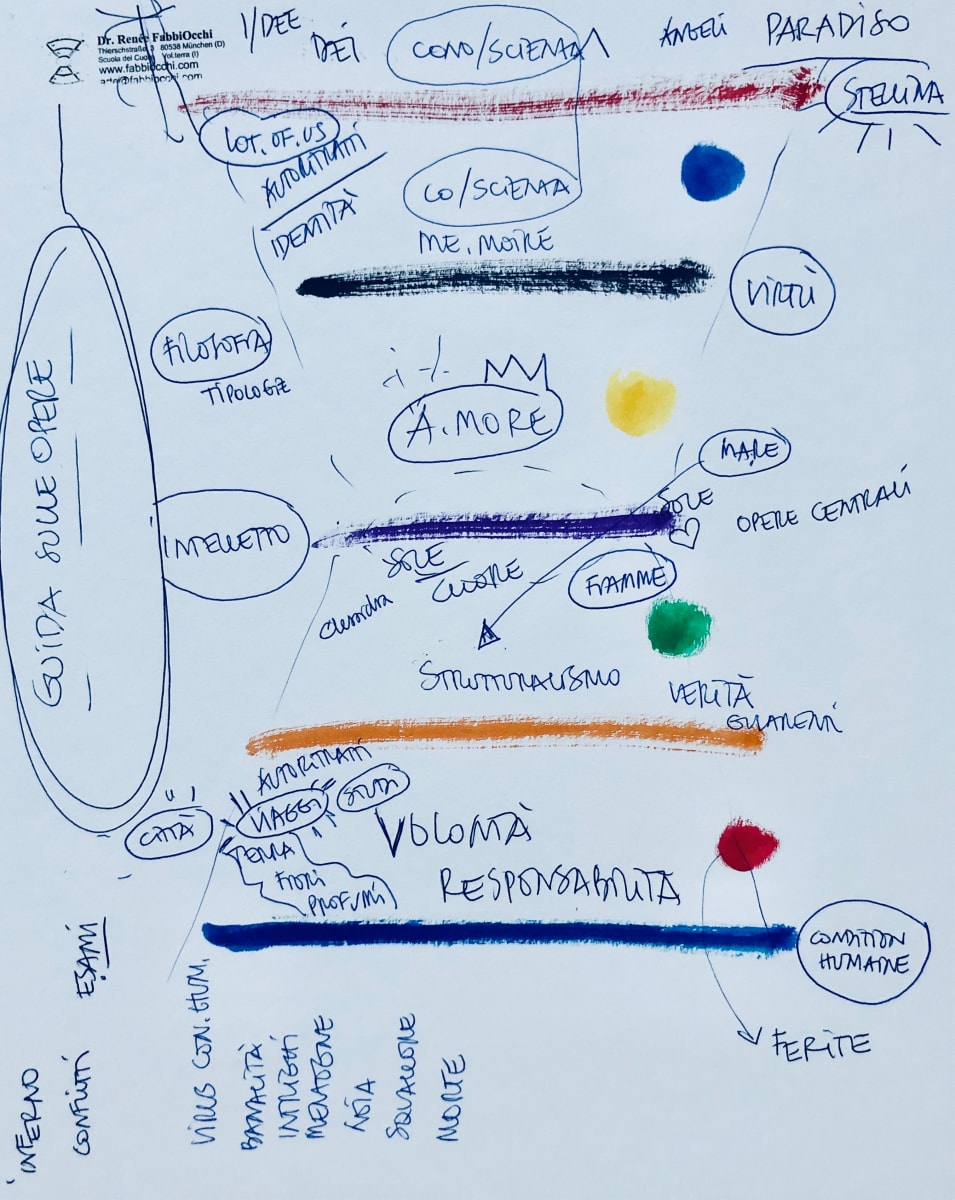 Dr. Renée FabbiOcchi
Thierschstraße 3 80538 München (D)
Scuola del Cuore Volterra (I)
www.fabbiocchi.com
I/DEE
DEI
CONO/SCIENZA
ANGELI
PARADISO
STELLINA
LOT.OF.US
AUTORITRATTI
IDENTITÀ
CO/SCIENZA
ME.MOIRE
VIRTÙ
FILOSOFIA
TIPOLOGIE
A.MORE
MARE
GUIDA SULLE OPERE
INTELLETTO
SOLE
OPERE CENTRALI
SOLE
CUORE
Clessidra
FIAMME
STRUTTURALISMO
VERITÀ
AUTORITRATTI
VIAGGI
STUDI
CITTÀ
TERRA
FIORI
PROFUMI
VOLONTÀ
RESPONSABILITÀ
CONDITION
HUMAINE
FERITE
ESAMI
INFERNO
CONFLITTI
VIRUS CON.HUM.
BANALITÀ
INTRIGHI
MENZOGNE
NOIA
SQUALLORE
MORTE